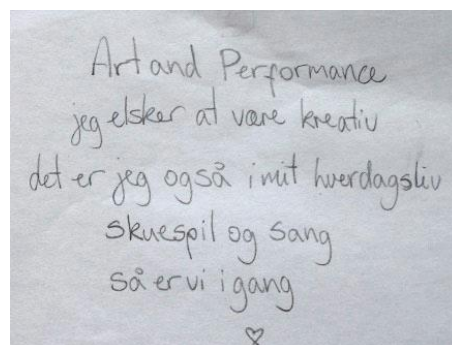 Art and Performance
jeg elsker at være kreativ
det er jeg også i mit hverdagsliv
skuespil og sang
så er vi i gang
♡